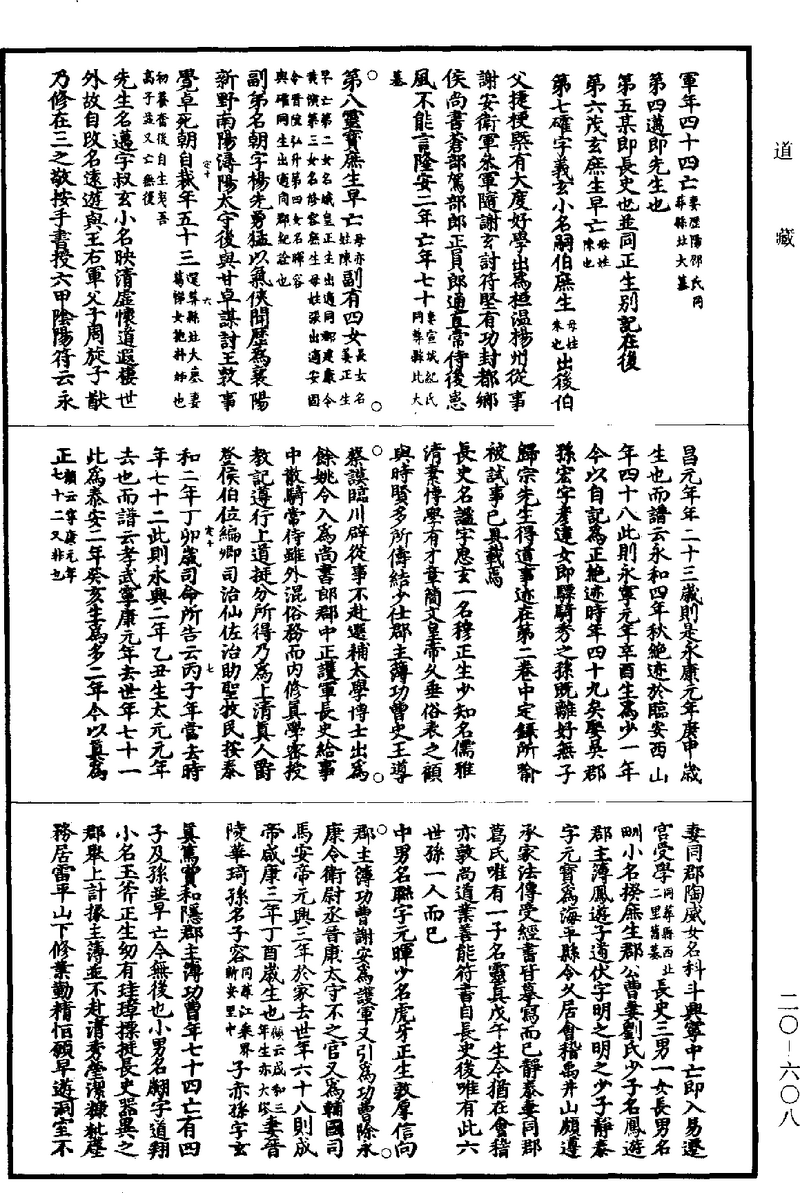 道藏
二〇—六〇八
軍年四十四亡妻歷陽邵氏同葬縣北大墓
第四邁即先生也
第五某即長史也並同正生別記在後
第六茂玄庶生早亡母姓陳也
第七確字義玄小名嗣伯庶生母姓朱也出後伯
父捷梗槩有大度好學出為桓溫楊州從事
謝安衛軍叅軍隨謝玄討苻堅有功封都鄉
侯尚書蒼部駕部郎正員郎通直常侍後患
風不能言隆安二年亡年七十妻宣城紀氏同葬縣北大墓
第八靈寶庶生早亡母亦姓陳副有四女長女名正生
早亡第二女名娥皇正生出適同郡建康令黃演第三女名庶生母姓張出適安固
令晉陵弘升第四女名暉容與確同生出適同郡紀詮也
副弟名朝字楊先勇猛以氣俠聞歷為襄陽
新野南陽潯陽太守後與甘卓謀討王敦事
覺卓死朝自裁年五十三還葬縣北大墓妻葛悌女抱朴姊也
初養耆後自生弟吾高子孟又亡無後
先生名邁字叔玄小名映清虛懷道遐棲世
外故自改名遠遊與王右軍父子周旋子猷
乃修在三之敬按手書授六甲陰陽符云永
昌元年年二十三歲則是永康元年庚申歲
生也而譜云永和四年秋絶迹於臨安西山
年四十八此則永寧元年辛酉生為少一年
今以自記為正絶迹時年四十九矣娶吳郡
孫宏字孝達女即驃騎秀之孫既離好無子
歸宗先生得道事迹在第二卷中定錄所喻
被試事已具載焉
長史名謐字思玄一名穆正生少知名儒雅
清素博學有才章簡文皇帝久垂俗表之顧
與時賢多所儔結少仕郡主簿功曹史王導
蔡謨臨川辟從事不赴選補太學博士出為
餘姚令入為尚書郎郡中正護軍長史給事
中散騎常侍雖外混俗務而內修真學密授
教記遵行上道挺分所得乃為上清真人爵
登侯伯位編卿司治仙佐治助聖牧民按泰
和二年丁卯歲司命所告云丙子年當去時
年七十二此則永興二年乙丑生太元元年
去也而譜云孝武寧康元年去世年七十一
此為泰安二年癸亥生為多二年今以真為
正顧云寧康元年七十二又非也
妻同郡陶威女名科斗興寧中亡即入易遷
宮受學同葬縣西北二里舊墓長史三男一女長男名
甽小名揆庶生郡公曹妻劉氏少子名鳳遊
郡主簿鳳遊子道伏字明之明之少子靜泰
字元寶為海平縣令久居會稽禹井山頗遵
承家法傳受經書皆摹寫而已靜泰妻同郡
葛氏唯有一子名靈真戊午生今猶在會稽
亦敦尚道業善能符書自長史後唯有此六
世孫一人而已
中男名聯字元暉少名虎牙正生敦厚信向
郡主簿功曹謝安為護軍又引為功曹除永
康令衛尉丞晉康太守不之官又為輔國司
馬安帝元興三年於家去世年六十八則成
帝咸康三年丁酉歲生也顧云咸和三年生亦大塚妻晉
陵華琦孫名子容同葬江乘界新安里中子赤孫字玄
真篤實和隱郡主簿功曹年七十四亡有四
子及孫並早亡今無後也小男名翽字道翔
小名玉斧正生幼有珪璋摽挺長史器異之
郡舉上計掾主簿並不赴清秀瑩潔糠粃塵
務居雷平山下修業勤精恒願早遊洞室不